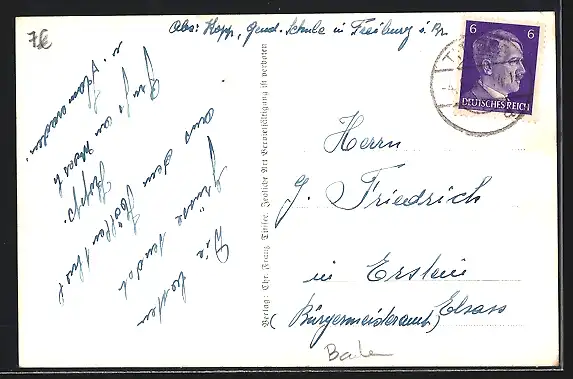 7€
Abs: Kopp, Gend. Schule in Freiburg i. Br.
Die besten
Grüsse sendet
aus dem Höllental
Kopp.
Gruß an
u. Kameraden.
Verlag: Chr. Franz, Titisee. Jegliche Art Vervielfältigung ist verboten
6 6
DEUTSCHES REICH
Herrn
G. Friedrich
in Erstein
Elsass
(Bürgermeisteramt)
Baden